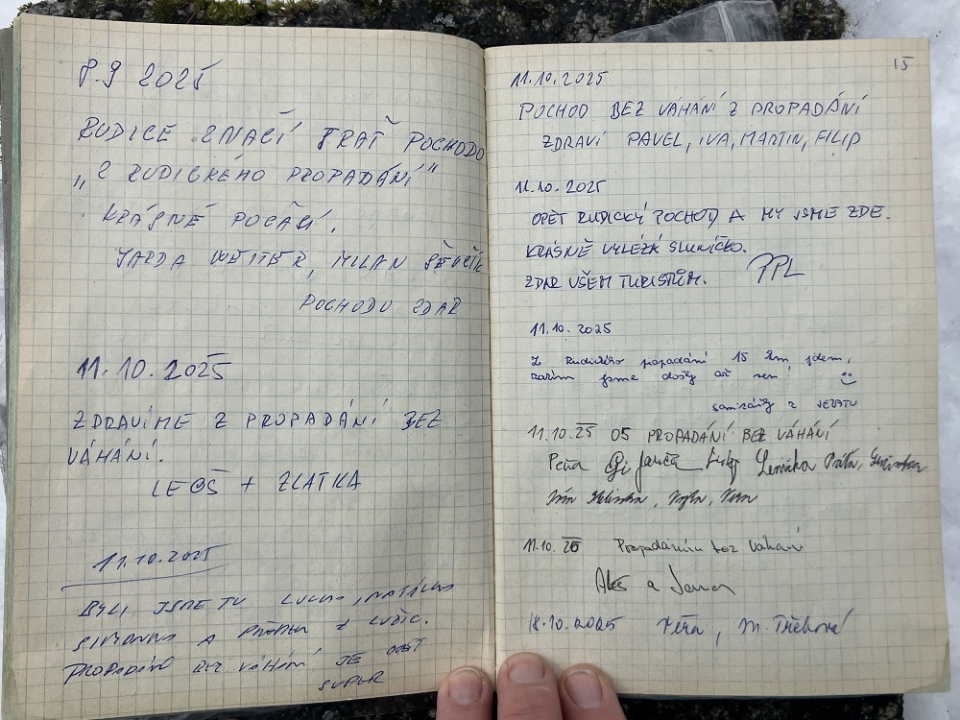 8.9 2025
RUDICE ZNAČÍ TRAŤ POCHODU
„Z RUDICKÉHO PROPADÁNÍ"
KRÁSNÉ POČASÍ.
JARDA, MILAN
POCHODU ZDAR
11.10.2025
ZDRAVÍME Z PROPADÁNÍ BEZ
VÁHÁNÍ.
LEOŠ + ZLATKA
11.10.2025
BYLI JSME TU
A Z
PROPADÁNÍ BEZ VÁHÁNÍ JE
SUPER
15
11.10.2025
POCHOD BEZ VÁHÁNÍ Z PROPADÁNÍ
ZDRAVÍ PAVEL, IVA, MARTIN, FILIP
11.10.2025
OPĚT RUDICKÝ POCHOD A MY JSME ZDE.
KRÁSNĚ VYLÉZÁ SLUNÍČKO.
ZDAR VŠEM TURISTŮM.
PPL
11.10.2025
Z Rudického propadání 15 km jdem,
zatím jsme došly až sem!
z
11.10.25 05 PROPADÁNÍ BEZ VÁHÁNÍ
11.10.25 Propadáním bez váhání
a Jana
18.10.2025 Věra, M.